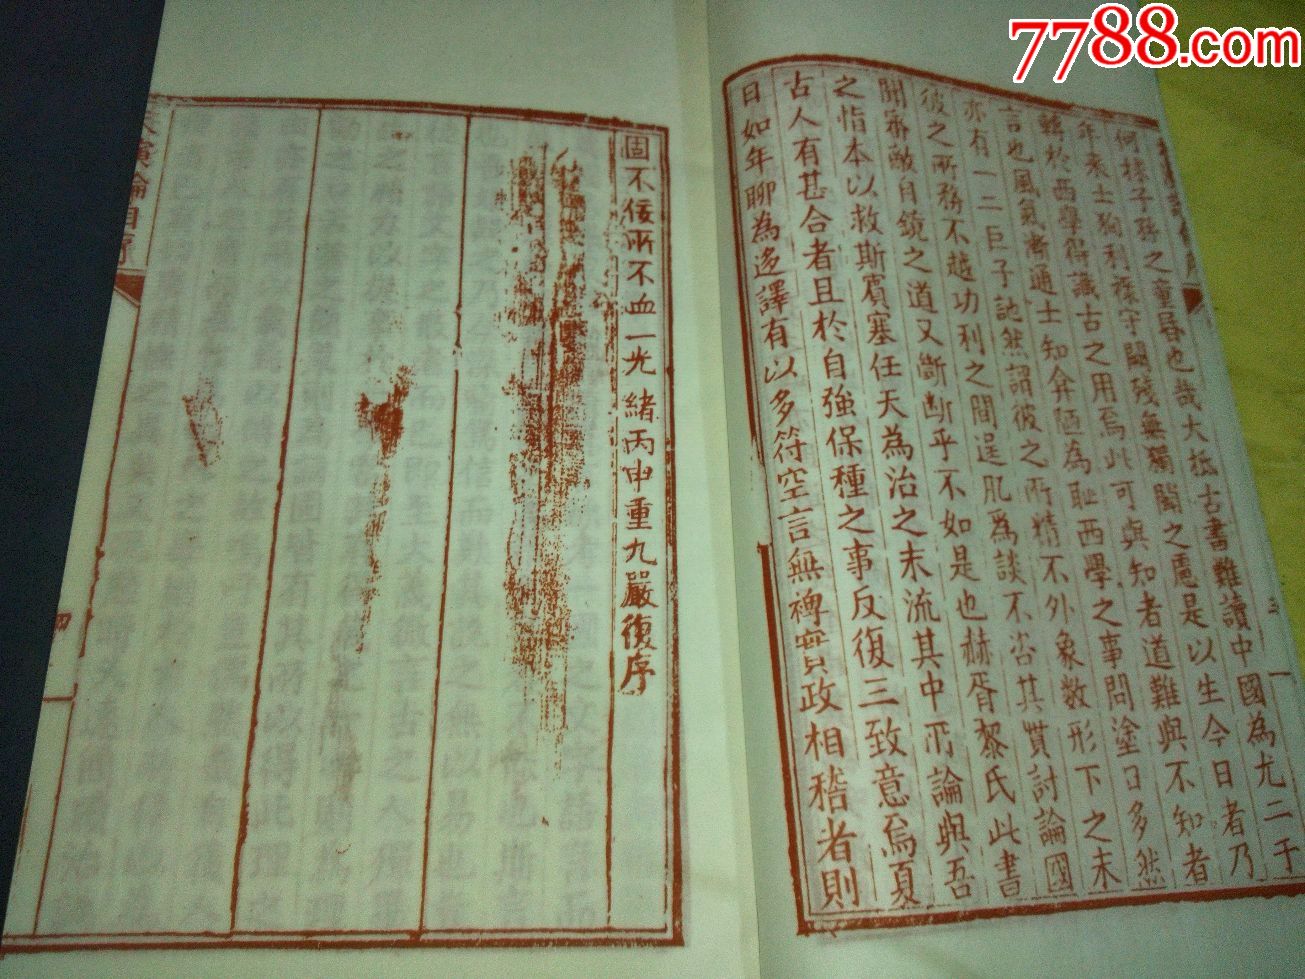 何樣子孫之童昏也哉大抵古書難讀中國為尤二千
年來士徇利祿守闕殘無獨闢之慮是以生今日者乃
轉於西學得識古之用焉此可與知者道難與不知者
言也風氣漸通士知弇陋為恥西學之事問塗日多然
亦有一二巨子訑然謂彼之所精不外象數形下之末
彼之所務不越功利之間逞肊為談不咨其實討論國
聞審敵自鏡之道又斷斷乎不如是也赫胥黎氏此書
之恉本以救斯賓塞任天為治之末流其中所論與吾
古人有甚合者且於自強保種之事反復三致意焉夏
日如年聊為迻譯有以多符空言無裨實政相稽者則
固不佞所不血一光緒丙申重九嚴復序
演論自序
四
7788.com